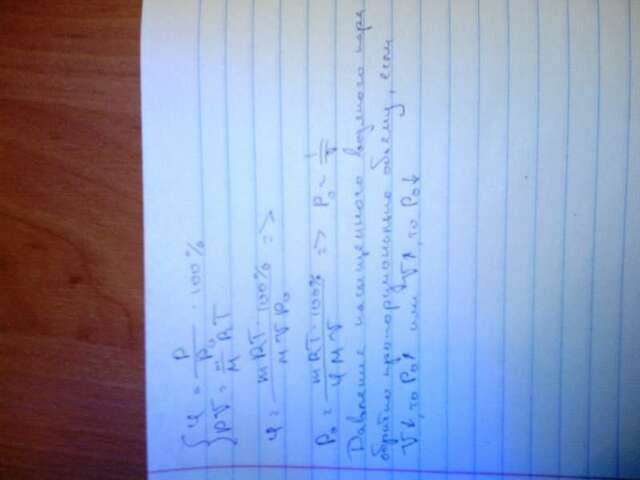 φ = P/P₀ · 100%
PV = m/M RT
φ = mRT · 100% / MVP₀ =>
P₀ = mRT · 100% / φMV => P₀ ~ 1/V
Давление насыщенного водяного пара
обратно пропорционально объему, если
V↓, то P₀↑ или V↑, то P₀↓